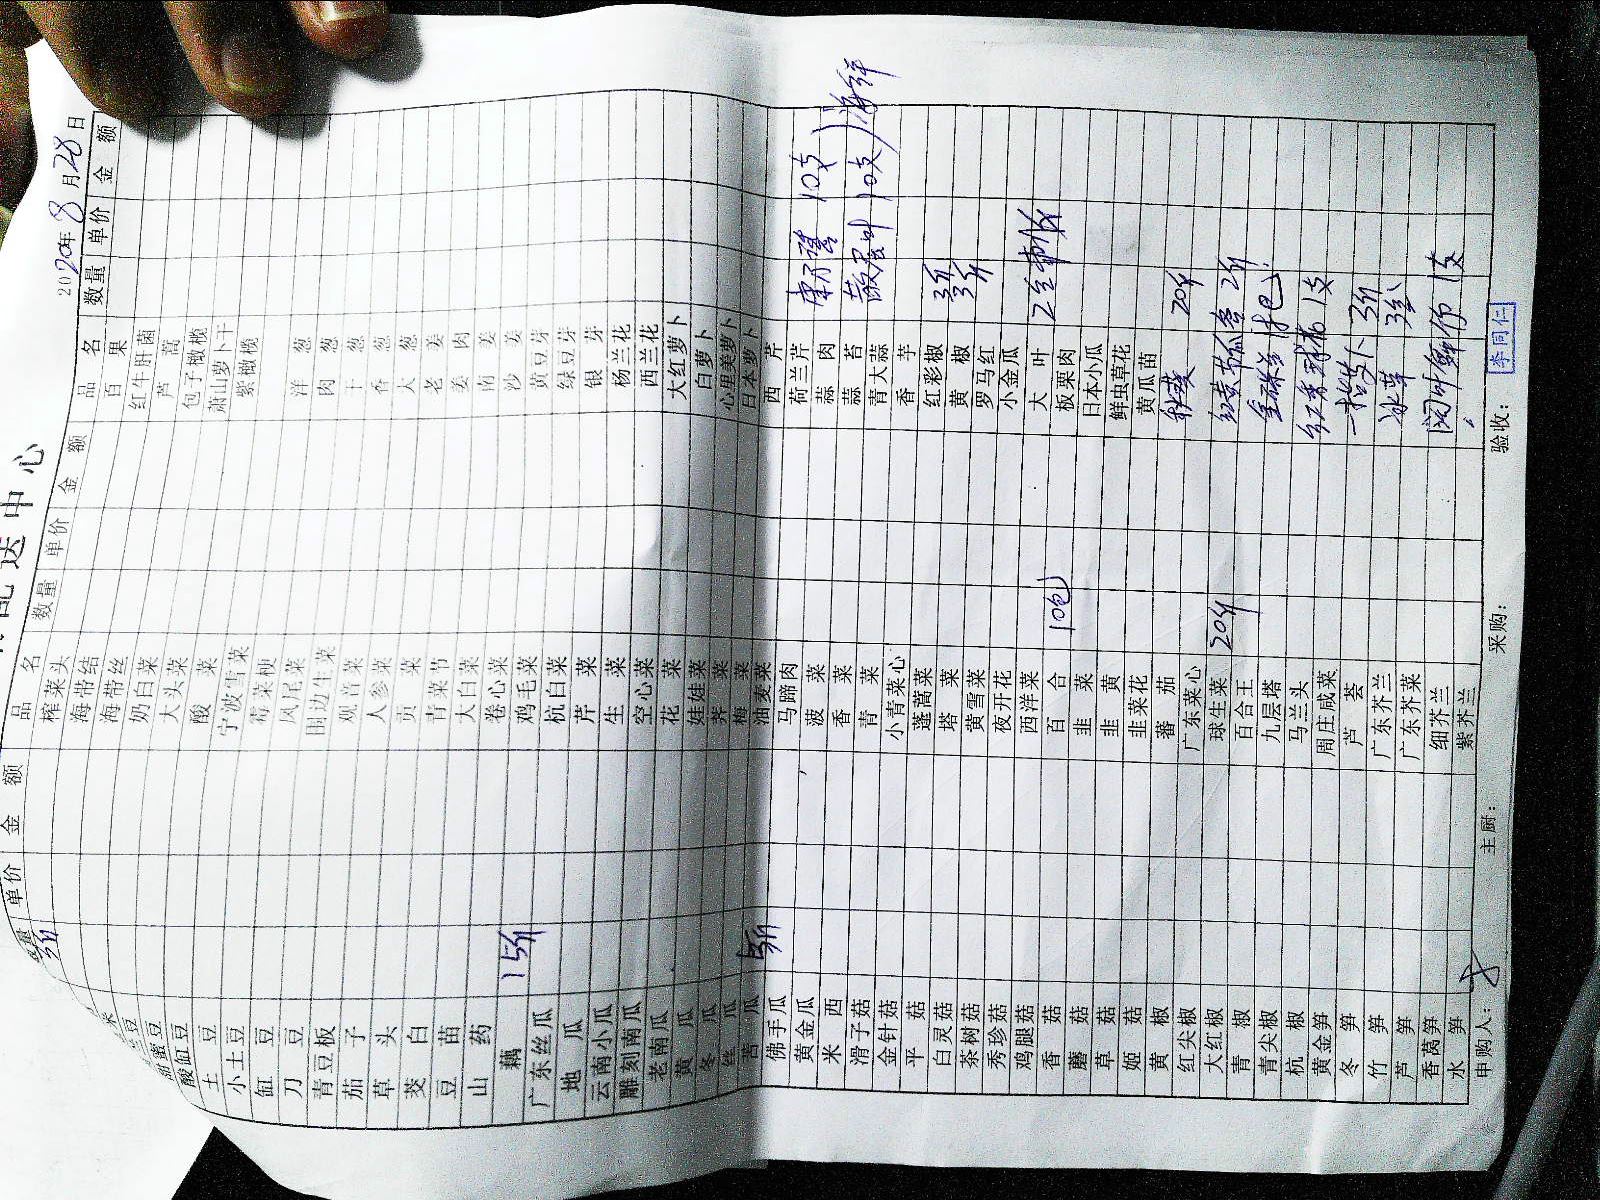 配送中心
2020年8月28日
数量 单价 金额
3斤
甜蜜豆
酸缸豆
土豆
小土豆
缸豆
刀豆
青豆板
茄子
草头
茭白
豆苗
山药
藕 15斤
广东丝瓜
地瓜
云南小瓜
雕刻南瓜
老南瓜
黄瓜
冬瓜
丝瓜
苦瓜 5斤
佛手瓜
黄金瓜
米西
滑子菇
金针菇
平菇
白灵菇
茶树菇
秀珍菇
鸡腿菇
香菇
蘑菇
草菇
姬菇
黄椒
红尖椒
大红椒
青椒
青尖椒
杭椒
黄金笋
冬笋
竹笋
芦笋
香莴笋
水笋
品名 数量 单价 金额
榨菜头
海带结
海带丝
奶白菜
大头菜
酸菜
宁波雪菜
霉菜梗
凤尾菜
围边生菜
观音菜
人参菜
贡菜
青菜节
大白菜
卷心菜
鸡毛菜
杭白菜
芹菜
生菜
空心菜
花菜
娃娃菜
荠菜
梅菜
油麦菜
马蹄肉
菠菜
香菜
青菜
小青菜心
蓬蒿菜
塔菜
黄雪菜
夜开花
西洋菜
百合 10包
韭菜
韭黄
韭菜花
蕃茄
广东菜心
球生菜 20斤
百合王
九层塔
马兰头
周庄咸菜
芦荟
广东芥兰
广东芥菜
细芥兰
紫芥兰
品名 数量 单价 金额
百果
红牛肝菌
芦蒿
包子橄榄
萧山萝卜干
紫橄榄
洋葱
肉葱
干葱
香葱
大葱
老姜
姜肉
南姜
沙姜
黄豆芽
绿豆芽
银芽
杨兰花
西兰花
大红萝卜
白萝卜
心里美萝卜
日本萝卜
西芹
荷兰芹 康乃馨 10支
蒜肉
蒜苔 散尾叶 10支 海鲜
青大蒜
香芋
红彩椒 3斤
黄椒 3斤
罗马红
小金瓜
大叶
板栗肉
日本小瓜
鲜虫草花
黄瓜苗
秋葵 20斤
2斤
1支
3斤
冰草 3盒
1支
申购人：
主厨：
采购：
验收： 李同仁